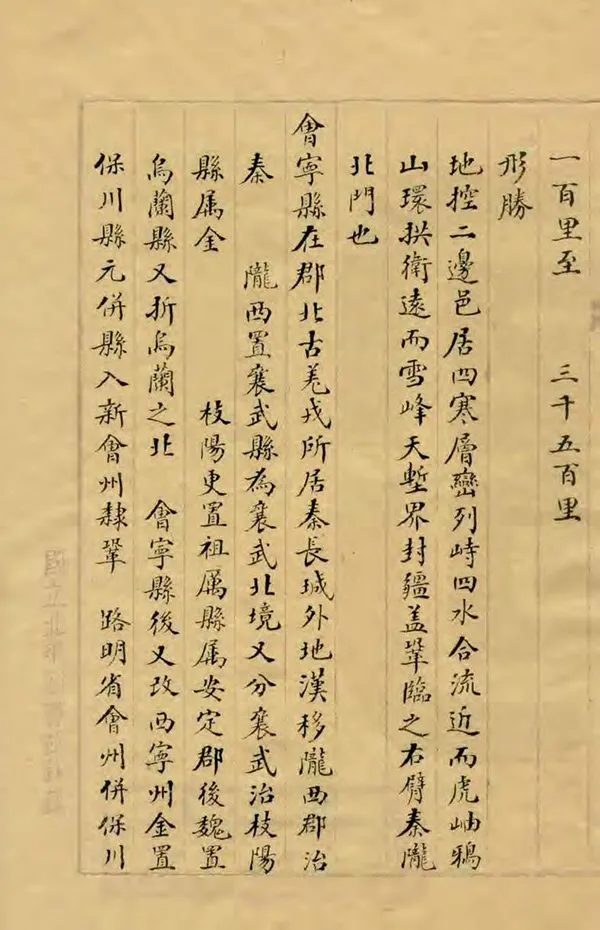 一百里至　　三千五百里
形勝
地控二邊邑居四寒層巒列峙四水合流近而虎岫鴉
山環拱衛遠而雪峰天塹界封疆盖鞏臨之右臂秦隴
北門也
會寧縣在郡北古羌戎所居秦長城外地漢移隴西郡治
秦　　隴西置襄武縣為襄武北境又分襄武治枝陽
縣属金　　　　枝陽更置祖厲縣属安定郡後魏置
烏蘭縣又折烏蘭之北　會寧縣後又改西寧州金置
保川縣元併縣入新會州隸鞏　路明省會州併保川